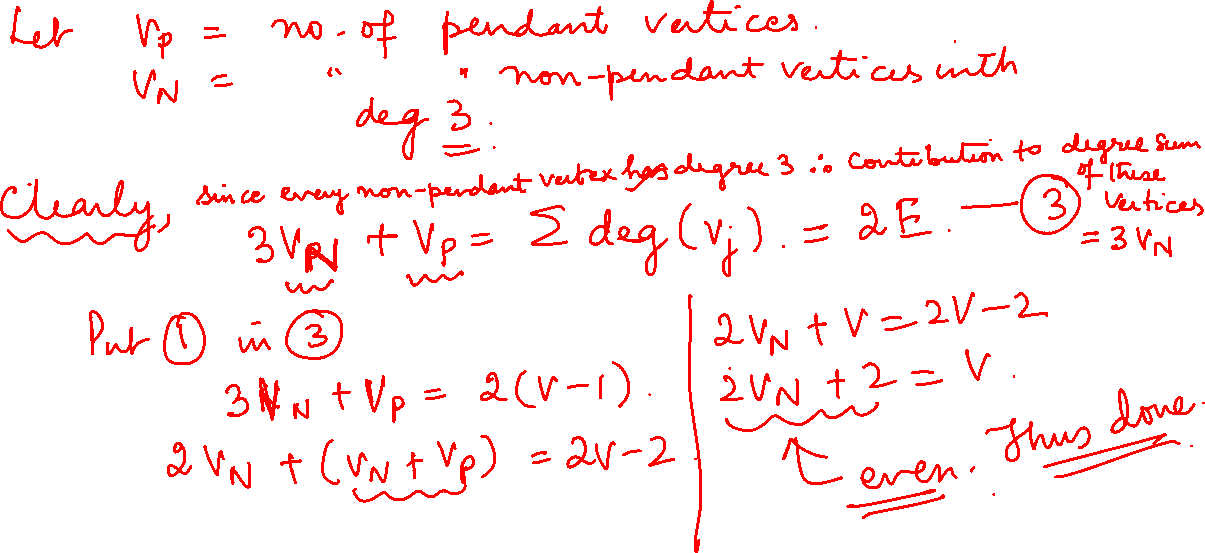 Let V_P = no. of pendant vertices.
V_N = " " non-pendant vertices with
deg 3.
Clearly, since every non-pendant vertex has degree 3 ∴ contribution to degree sum
of these
vertices
= 3V_N
3V_N + V_P = Σ deg(V_j). = 2E. — ③
Put ① in ③
3V_N + V_P = 2(V-1).
2V_N + (V_N + V_P) = 2V-2
2V_N + V = 2V-2
2V_N + 2 = V.
↑ even. Thus done.